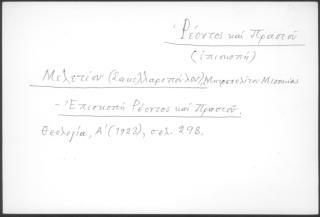 Ῥέοντος καὶ Πραστοῦ
(ἐπισκοπή)
Μελετίου (Σακελλαροπούλου), Μητροπολίτου Μεσσηνίας
- Ἐπισκοπὴ Ῥέοντος καὶ Πραστοῦ.
Θεολογία, Α' (1923), σελ. 298.